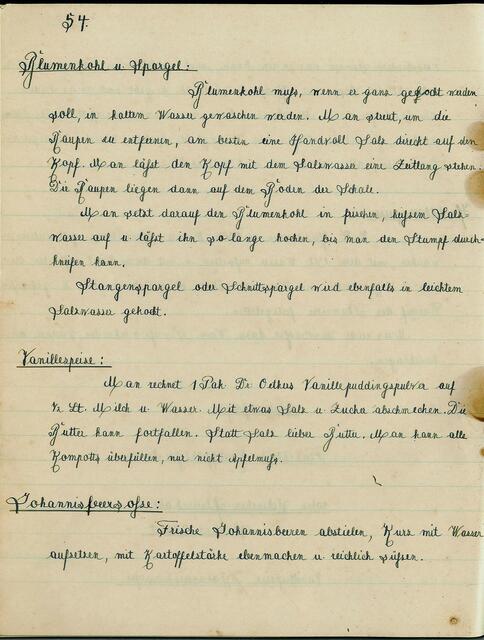 54.
Blumenkohl u. Spargel:
Blumenkohl muß, wenn er ganz gekocht werden
soll, in kaltem Wasser gewaschen werden. Man streut, um die
Raupen zu entfernen, am besten eine Handvoll Salz direkt auf den
Kopf. Man läßt den Kopf mit dem Salzwasser eine Zeitlang stehen.
Die Raupen liegen dann auf dem Boden der Schale.
Man setzt darauf den Blumenkohl in frischem, heißem Salz-
wasser auf u. läßt ihn so lange kochen, bis man den Stumpf durch-
kneifen kann.
Stangenspargel oder Schnittspargel wird ebenfalls in leichtem
Salzwasser gekocht.
Vanillespeise:
Man rechnet 1 Pak. Dr. Oetkers Vanillepuddingpulver auf
½ Lt. Milch u. Wasser. Mit etwas Salz u. Zucker abschmecken. Die
Butter kann fortfallen. Statt Salz lieber Butter. Man kann alle
Kompotts überfüllen, nur nicht Apfelmuß.
Johannisbeersoße:
Frische Johannisbeeren abstielen, Kurz mit Wasser
aufsetzen, mit Kartoffelstärke ebenmachen u. reichlich süßen.